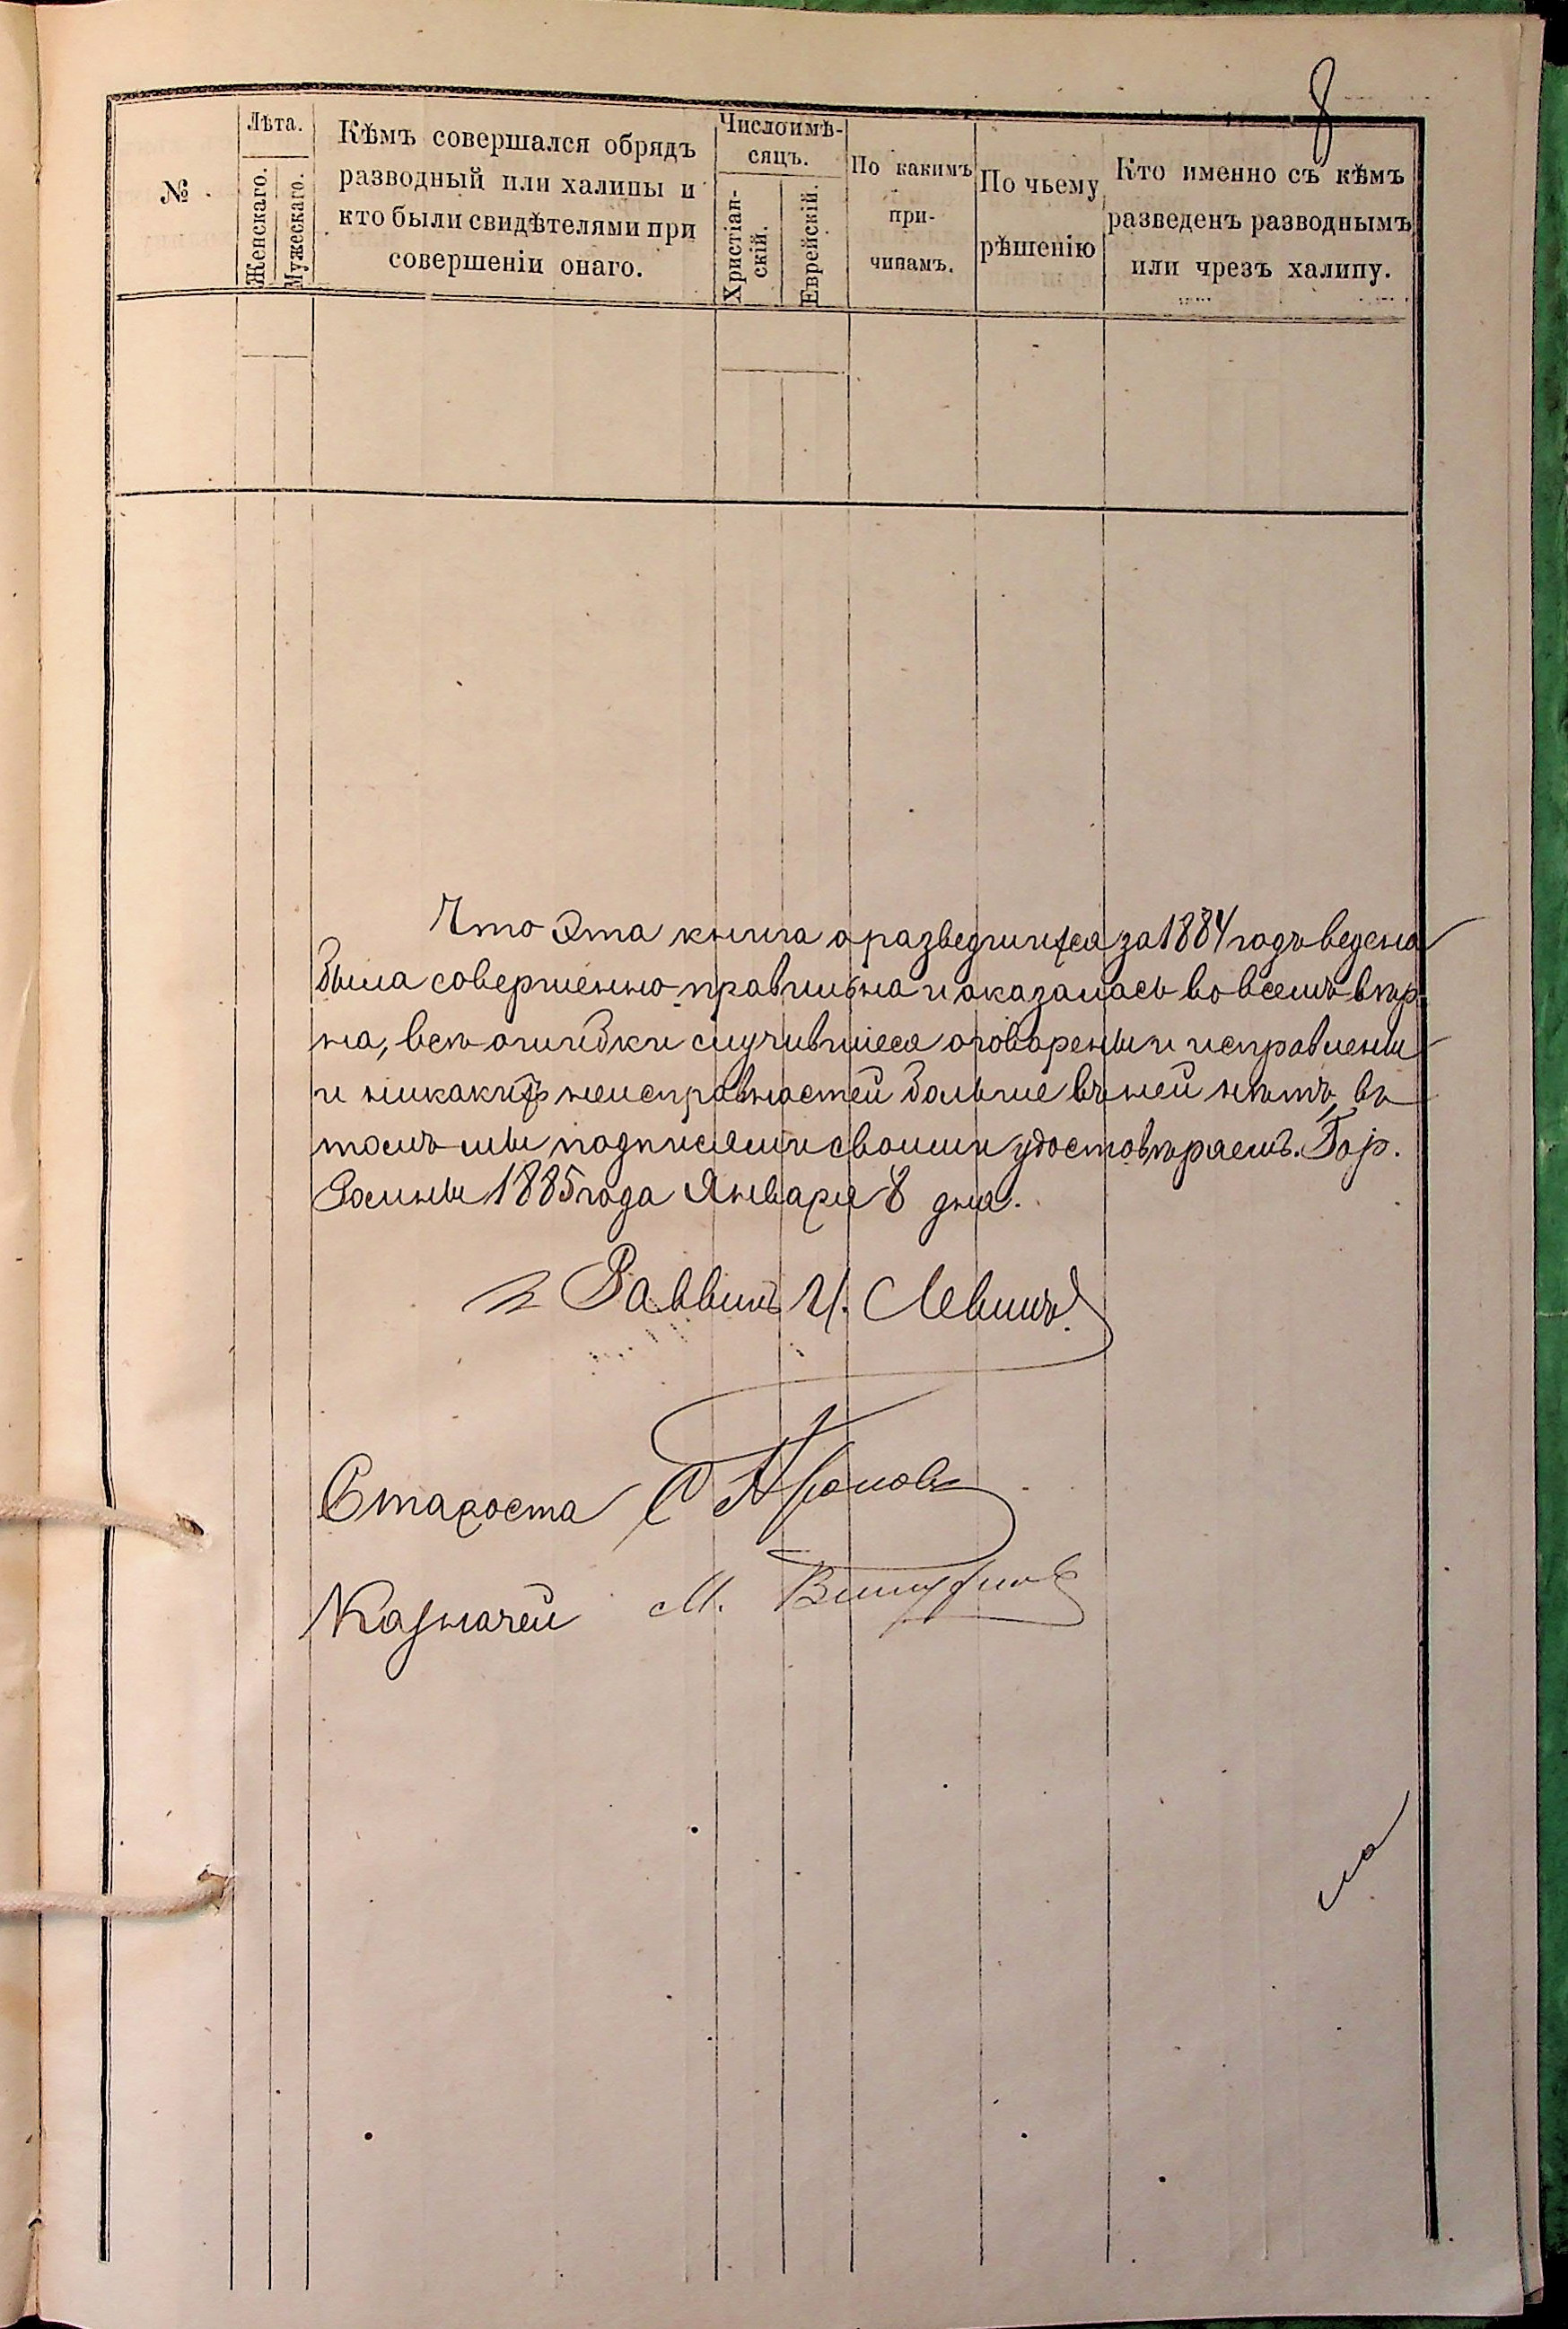 8
№
Лѣта.
Женскаго.
Мужескаго.
Кѣмъ совершался обрядъ
разводный или халицы и
кто были свидѣтелями при
совершеніи онаго.
Число и мѣ-
сяцъ.
Христіан-
скій.
Еврейскій.
По какимъ
при-
чинамъ.
По чьему
рѣшенію
Кто именно съ кѣмъ
разведенъ разводнымъ
или чрезъ халицу.
Что Эта книга о разведшихся за 1884 годъ ведена
была совершенно правильна и оказалась во всемъ вѣр-
на, всѣ ошибки случившіеся оговорены и исправлены
и никакихъ неисправностей больше въ ней нѣтъ, въ
томъ мы подписями своими удостовѣряемъ. Гор.
1885 года Января 8 дня.
Раввинъ И. Левинъ
Староста
Казначей М.